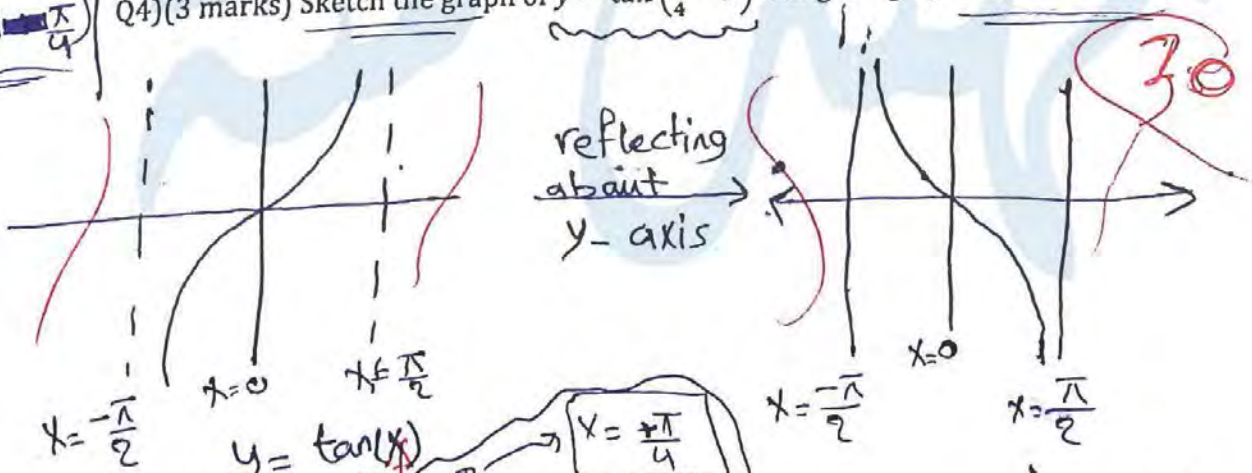 π/4)
Q4)(3 marks) Sketch the graph of y
tan (
4
reflecting
about
y- axis
30
x= -π/2
x=0
x= π/2
y= tan(x)
x= π/4
x= -π/2
x=0
x= π/2